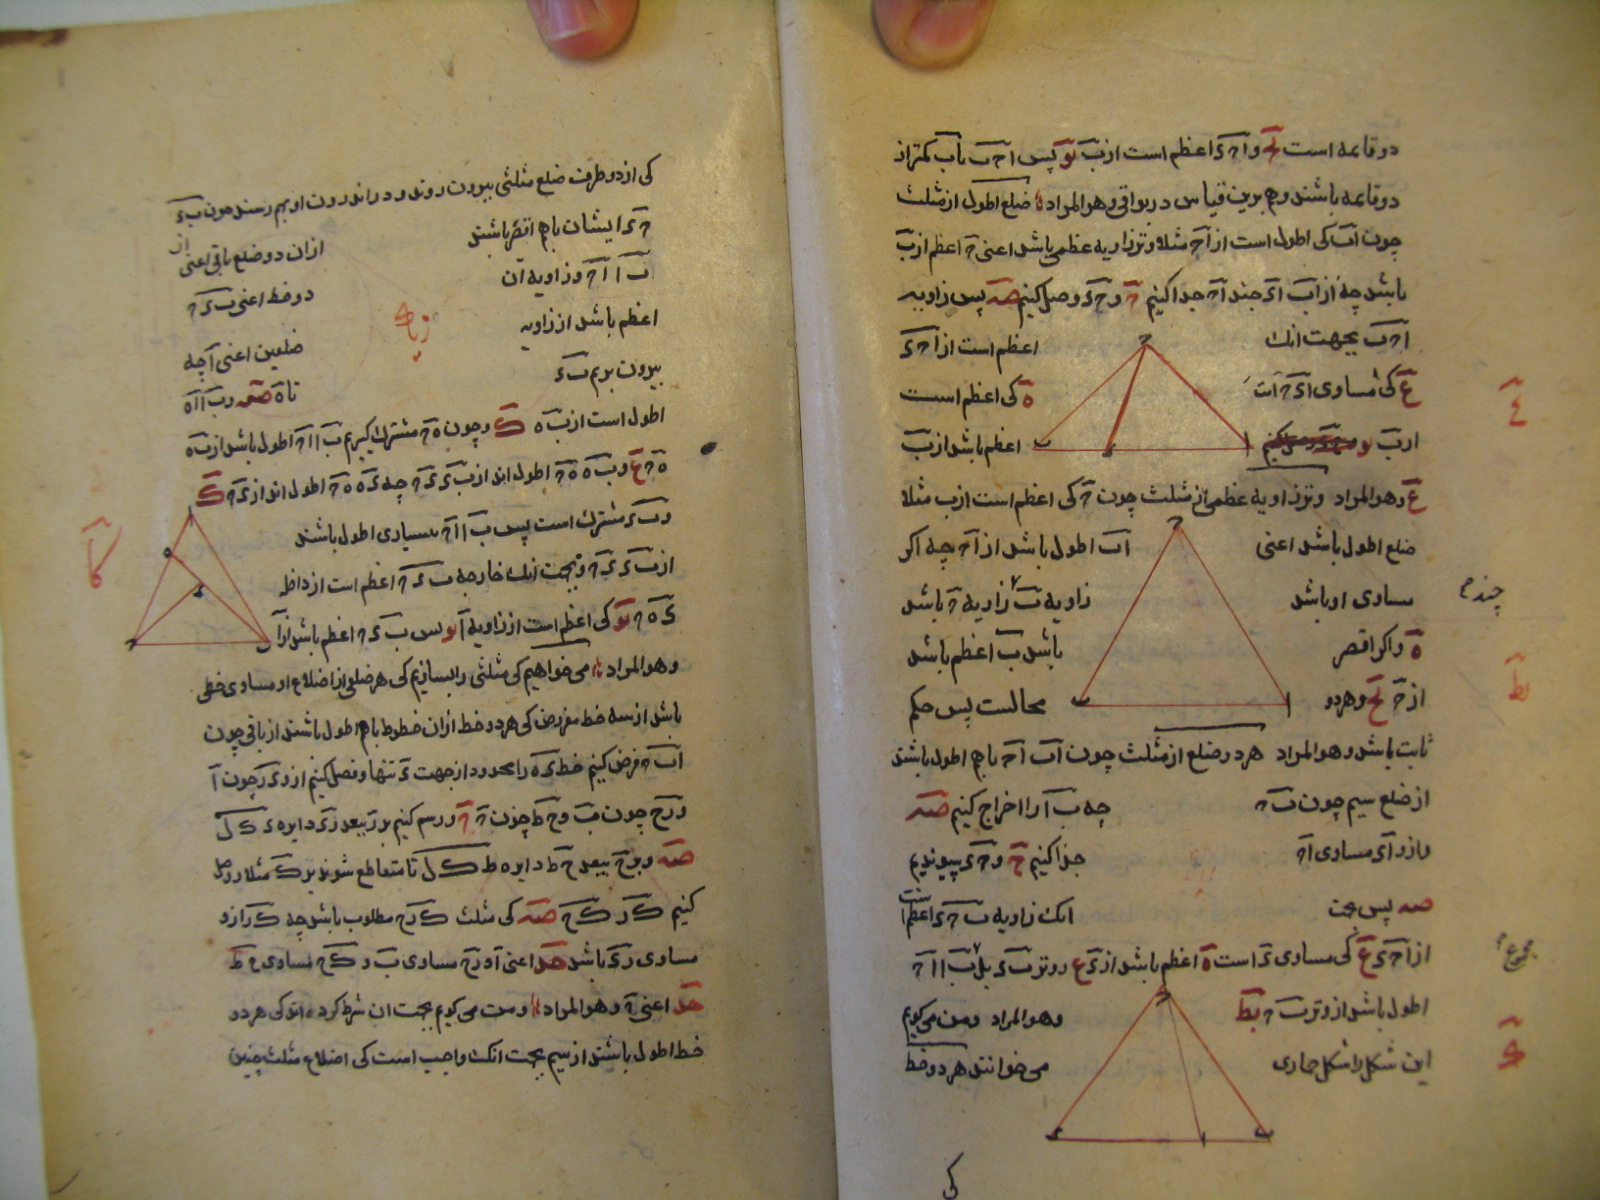 دو قایمه است یح و اح ء اعظم است از ب یو پس ا ح ب با ب کمتر از
دو قایمه باشند و هم برین قیاس در بواقی و هو المراد ضلع اطول از مثلث
چون اب کی اطول است از اح مثلا وتر زاویه عظمی باشد اعنی ح اعظم از ب
باشد چه از اب اء چند اح جدا کنیم ح و ح ء وصل کنیم صه پس زاویه
ا ح ب بجهت انک اعظم است از ا ح ء
کی مساوی ا ء ح است ه کی اعظم است
از ب یو اعظم باشد از ب
ع و هو المراد وتر زاویه عظمی از مثلث چون ح کی اعظم است از ب مثلا
ضلع اطول باشد اعنی اب اطول باشد از اح چه اکر
مساوی او باشد زاویه ب زاویه ح باشد
ه و اکر اقصر باشد ب اعظم باشد
از ح یح و هر دو محالست پس حکم
ثابت باشد و هو المراد هر دو ضلع از مثلث چون اب اح باهم اطول باشند
از ضلع سیم چون ب ح چه ب ا را اخراج کنیم صه
و از و ا ء مساوی اح جدا کنیم ح و ح ء پیوندیم
صه پس بجهت انک زاویه ب ح ء اعظم است
از ا ح ء ع کی مساوی ء است ه اعظم باشد از ء ع و وتر ب ء بل ب ا ا ح
مجموع
اطول باشد از وتر ب ح یط و هو المراد و من می کویم
این شکل را شکل حماری می خوانند هر دو خط
کی
کی از دو طرف ضلع مثلثی بیرون روند و در اندرون او بهم رسند چون ب ء
ح ء ایشان باهم اقصر باشند از ان دو ضلع باقی اعنی از
ب ا ا ح و زاویه آن دو خط اعنی ب ء ح
اعظم باشد از زاویه ضلعین اعنی ا چه
بیرون بریم ب ء تا ه صه و ب ا ا ه
اطول است از ب ه ک و چون ه ح مشترک کیریم ب ا ا ح اطول باشد از ب ه
ه ح ع و ب ه ه ح اطول اند از ب ء ء ح چه ء ه ه ح اطول اند از ء ح ک
و ب ء مشترک است پس ب ا ا ح بسیاری اطول باشند
از ب ء ء ح و بجهت انک خارجه ب ء ح اعظم است از داخله
ء ه ح یو کی اعظم است از زاویه ا یو پس ب ء ح اعظم باشد از ا
و هو المراد می خواهیم کی مثلثی را بسازیم کی هر ضلعی از اضلاع او مساوی خطی
باشد از سه خط مفروض کی هر دو خط از ان خطوط باهم اطول باشند از باقی چون
ا ب ح فرض کنیم خط ء ه را محدود از جهت ء تنها و فصل کنیم از و ء ر چون ا
و ر ح چون ب و ح ط چون ح ح و رسم کنیم بر ر ببعد ر ء دایره ء ک ل
صه و بر ح ببعد ح ط دایره ط ک ل تا متقاطع شوند بر ک مثلا و وصل
کنیم ک ر ک ح صه کی مثلث ک ر ح مطلوب باشد چه ک ر از و
مساوی ر ء باشد حد اعنی ا و ر ح مساوی ب و ک ح مساوی ح ط
حد اعنی ح و هو المراد و من می کویم بجهت ان شرط کرده اند کی هر دو
خط اطول باشند از سیم بجهت انک واجب است کی اضلاع مثلث چنین